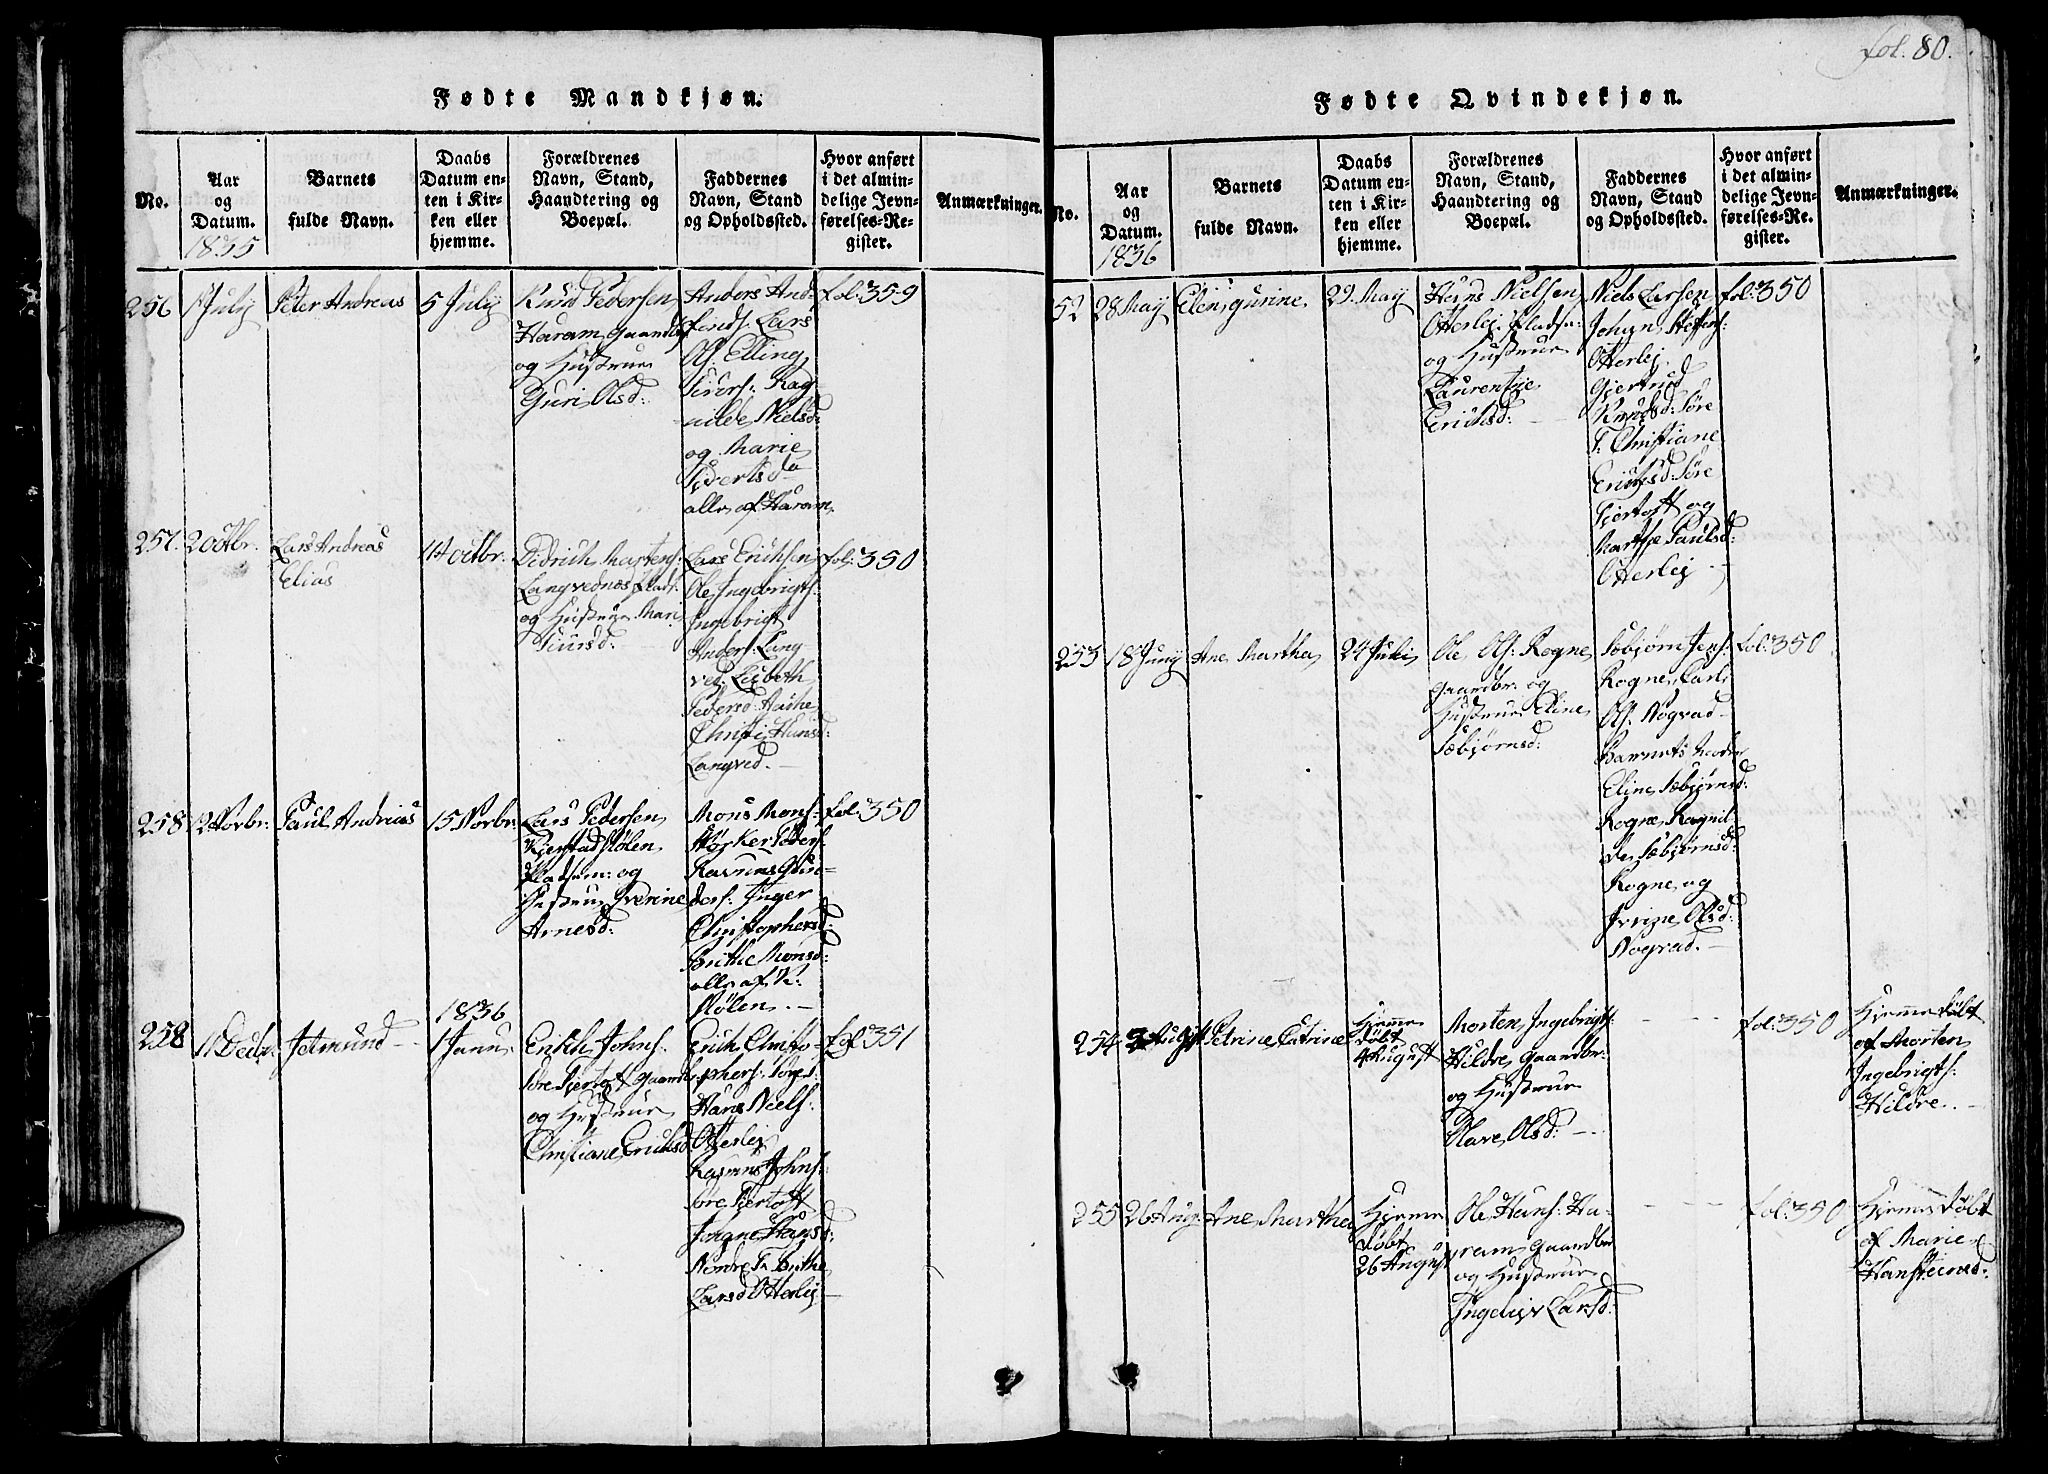 fol. 80.
Fødte Mandkjøn.
No.
Aar
og
Datum.
1835
Barnets
fulde Navn.
Daabs
Datum en-
ten i Kir-
ken eller
hjemme.
Forældrenes
Navn, Stand,
Haandtering og
Boepæl.
Faddernes
Navn, Stand
og Opholdssted.
Hvor anført
i det almin-
delige Jevn-
førelses-Re-
gister.
Anmærkninger.
256
1 July
Peter Andreas
5 July
Knud Pedersen
Haram gaardbr
og Hustrue
Guri Olsd:
Anders And-
Lars
Ols: Elling
Ivers: Rag-
nilde Nielsd:
og Marie
Sivertsd
alle af Haram
fol: 359
257.
2 Octbr.
Lars Andreas
Elias
11 Octbr.
Didrich Mortens:
Langvednes Plads:
og Hustrue Mari
Iversd:
Lars Erichsen
Ole Ingebrigts:
Ingebrigt
Anders: Lang-
ved. Lisbeth
Pedersd:
Christi Hansd:
Langved.
fol: 350
258
12 Novbr:
Paul Andreas
15 Novbr:
Lars Pedersen
Kjerstadstølen
Pladsm: og
Hustrue Iverine
Arnesd:
Mons Mons:
Peders.
Rasmus Gun-
ders: Inger
Christophersd:
Brithe Monsd:
alle af K:
Stølen.
fol: 350
258
11 Decbr.
Jetmund
1836
1 Janu.
Erich Johns:
søre Fjertoft gaardbr
og Hustrue
Christiane Erichsd
Erich Christo-
phers:
Hans Niels:
Otterlej
Rasmus Johns:
søre Fjertoft
Johane Hansd:
Nordre F. Brithe
Larsd Otterlej
fol: 351
Fødte Qvindekjøn.
No.
Aar
og
Datum.
1836
Barnets
fulde Navn.
Daabs
Datum en-
ten i Kir-
ken eller
hjemme.
Forældrenes
Navn, Stand,
Haandtering og
Boepæl.
Faddernes
Navn, Stand
og Opholdssted.
Hvor anført
i det almin-
delige Jevn-
førelses-Re-
gister.
Anmærkninger.
252
28 May
Elen gurine
29. May
Hans Nielsen
Otterlej Pladsm:
og Hustrue
Laurentje
Erichsd:
Niels Larsen
Johan Steffens:
Otterlej
Gjertrud
Knudsd: Søre
F. Christiane
Erichsd: Søre
Fjertoft og
Marthe Paulsd:
Otterlej
fol: 350
253
18 Juny
Ane Martha
24 Juli
Ole Ols: Rogne
gaardbr. og
Hustrue Eline
Sæbjørnsd:
Sæbjørn Jens:
Rogne, Carl
Ols: Nograd
Barnets Moder
Eline Sæbjørnsd:
Rogne Ragnil-
de Sæbjørnsd:
Rogne og
Olsd:
Nograd.
fol: 350
254
3 August
Petrine Catrine
Hjemme
døbt
4 August
Morten Ingebrigts:
Hildre gaardbr:
og Hustrue
Olave Olsd:
fol: 350
Hjemmedøbt
af Morten
Ingebrigts:
Hildre.
255
26 Aug:
Ane Martha
Hjemme
døbt
26 August
Ole Hans: Ha-
ram gaardbr
og Hustrue
Ingeleiv Larsd:
fol: 350
Hjemmedøbt
af Marie
Hansteinsd: